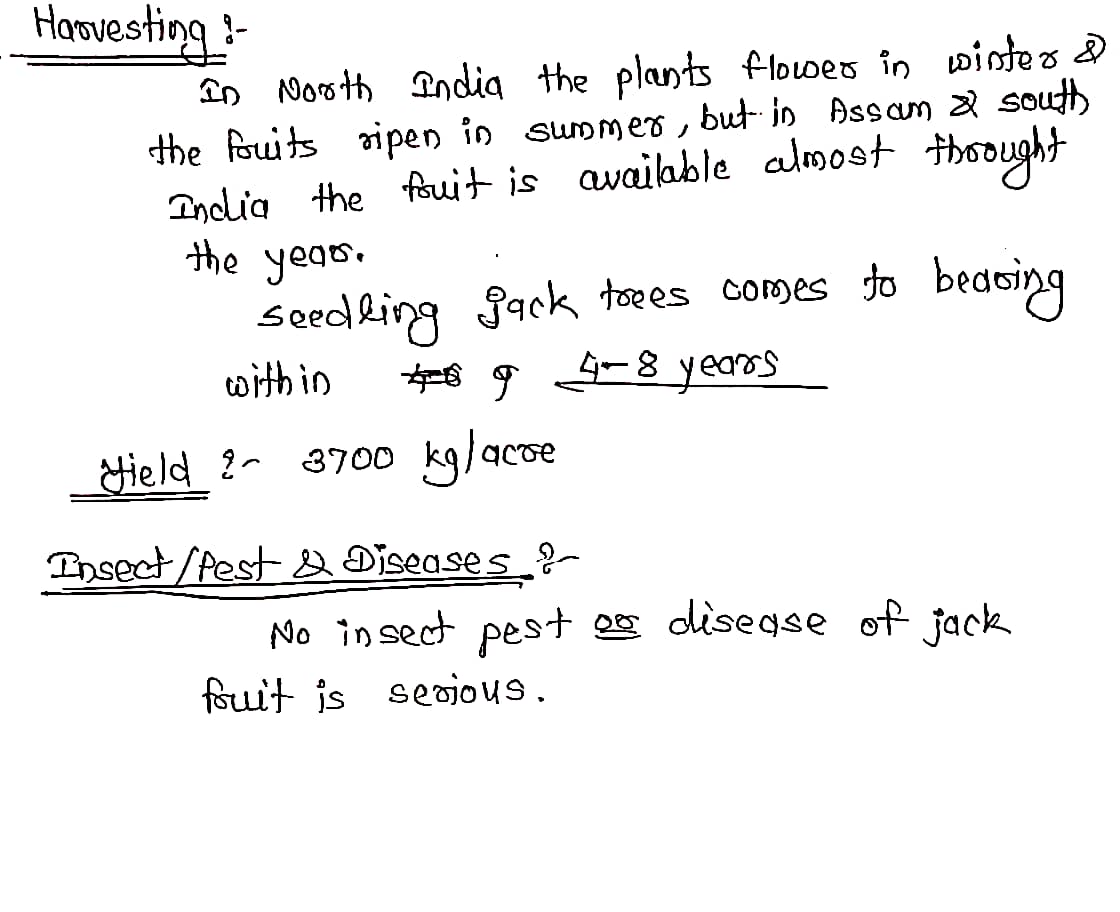 Harvesting :-
In North India the plants flower in winter &
the fruits ripen in summer, but in Assam & south
India the fruit is available almost throught
the year.
seedling Jack trees comes to bearing
within 4-8 years
Yield :- 3700 kg/acre
Insect/Pest & Diseases :-
No insect pest or disease of jack
fruit is serious.